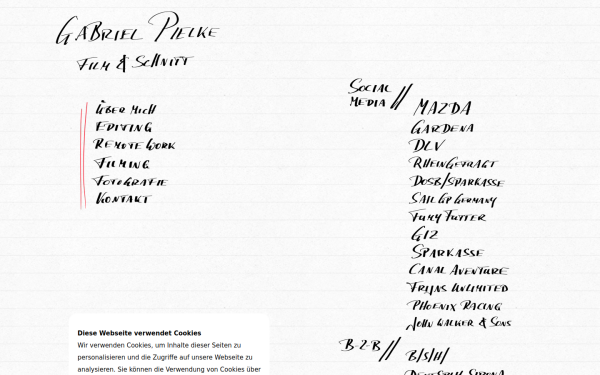 GABRIEL PIELKE
FILM & SCHNITT
ÜBER MICH
EDITING
REMOTE WORK
FILMING
FOTOGRAFIE
KONTAKT
SOCIAL
MEDIA //
MAZDA
GARDENA
DLV
RHEINGEFRAGT
DOSB/SPARKASSE
SAIL GP GERMANY
FUNY FUTTER
GIZ
SPARKASSE
CANAL AVENTURE
FRIJNS UNLIMITED
PHOENIX RACING
JOHN WALKER & SONS
B-2-B //
B/S/H/
Diese Webseite verwendet Cookies
Wir verwenden Cookies, um Inhalte dieser Seiten zu
personalisieren und die Zugriffe auf unsere Webseite zu
analysieren. Sie können die Verwendung von Cookies über